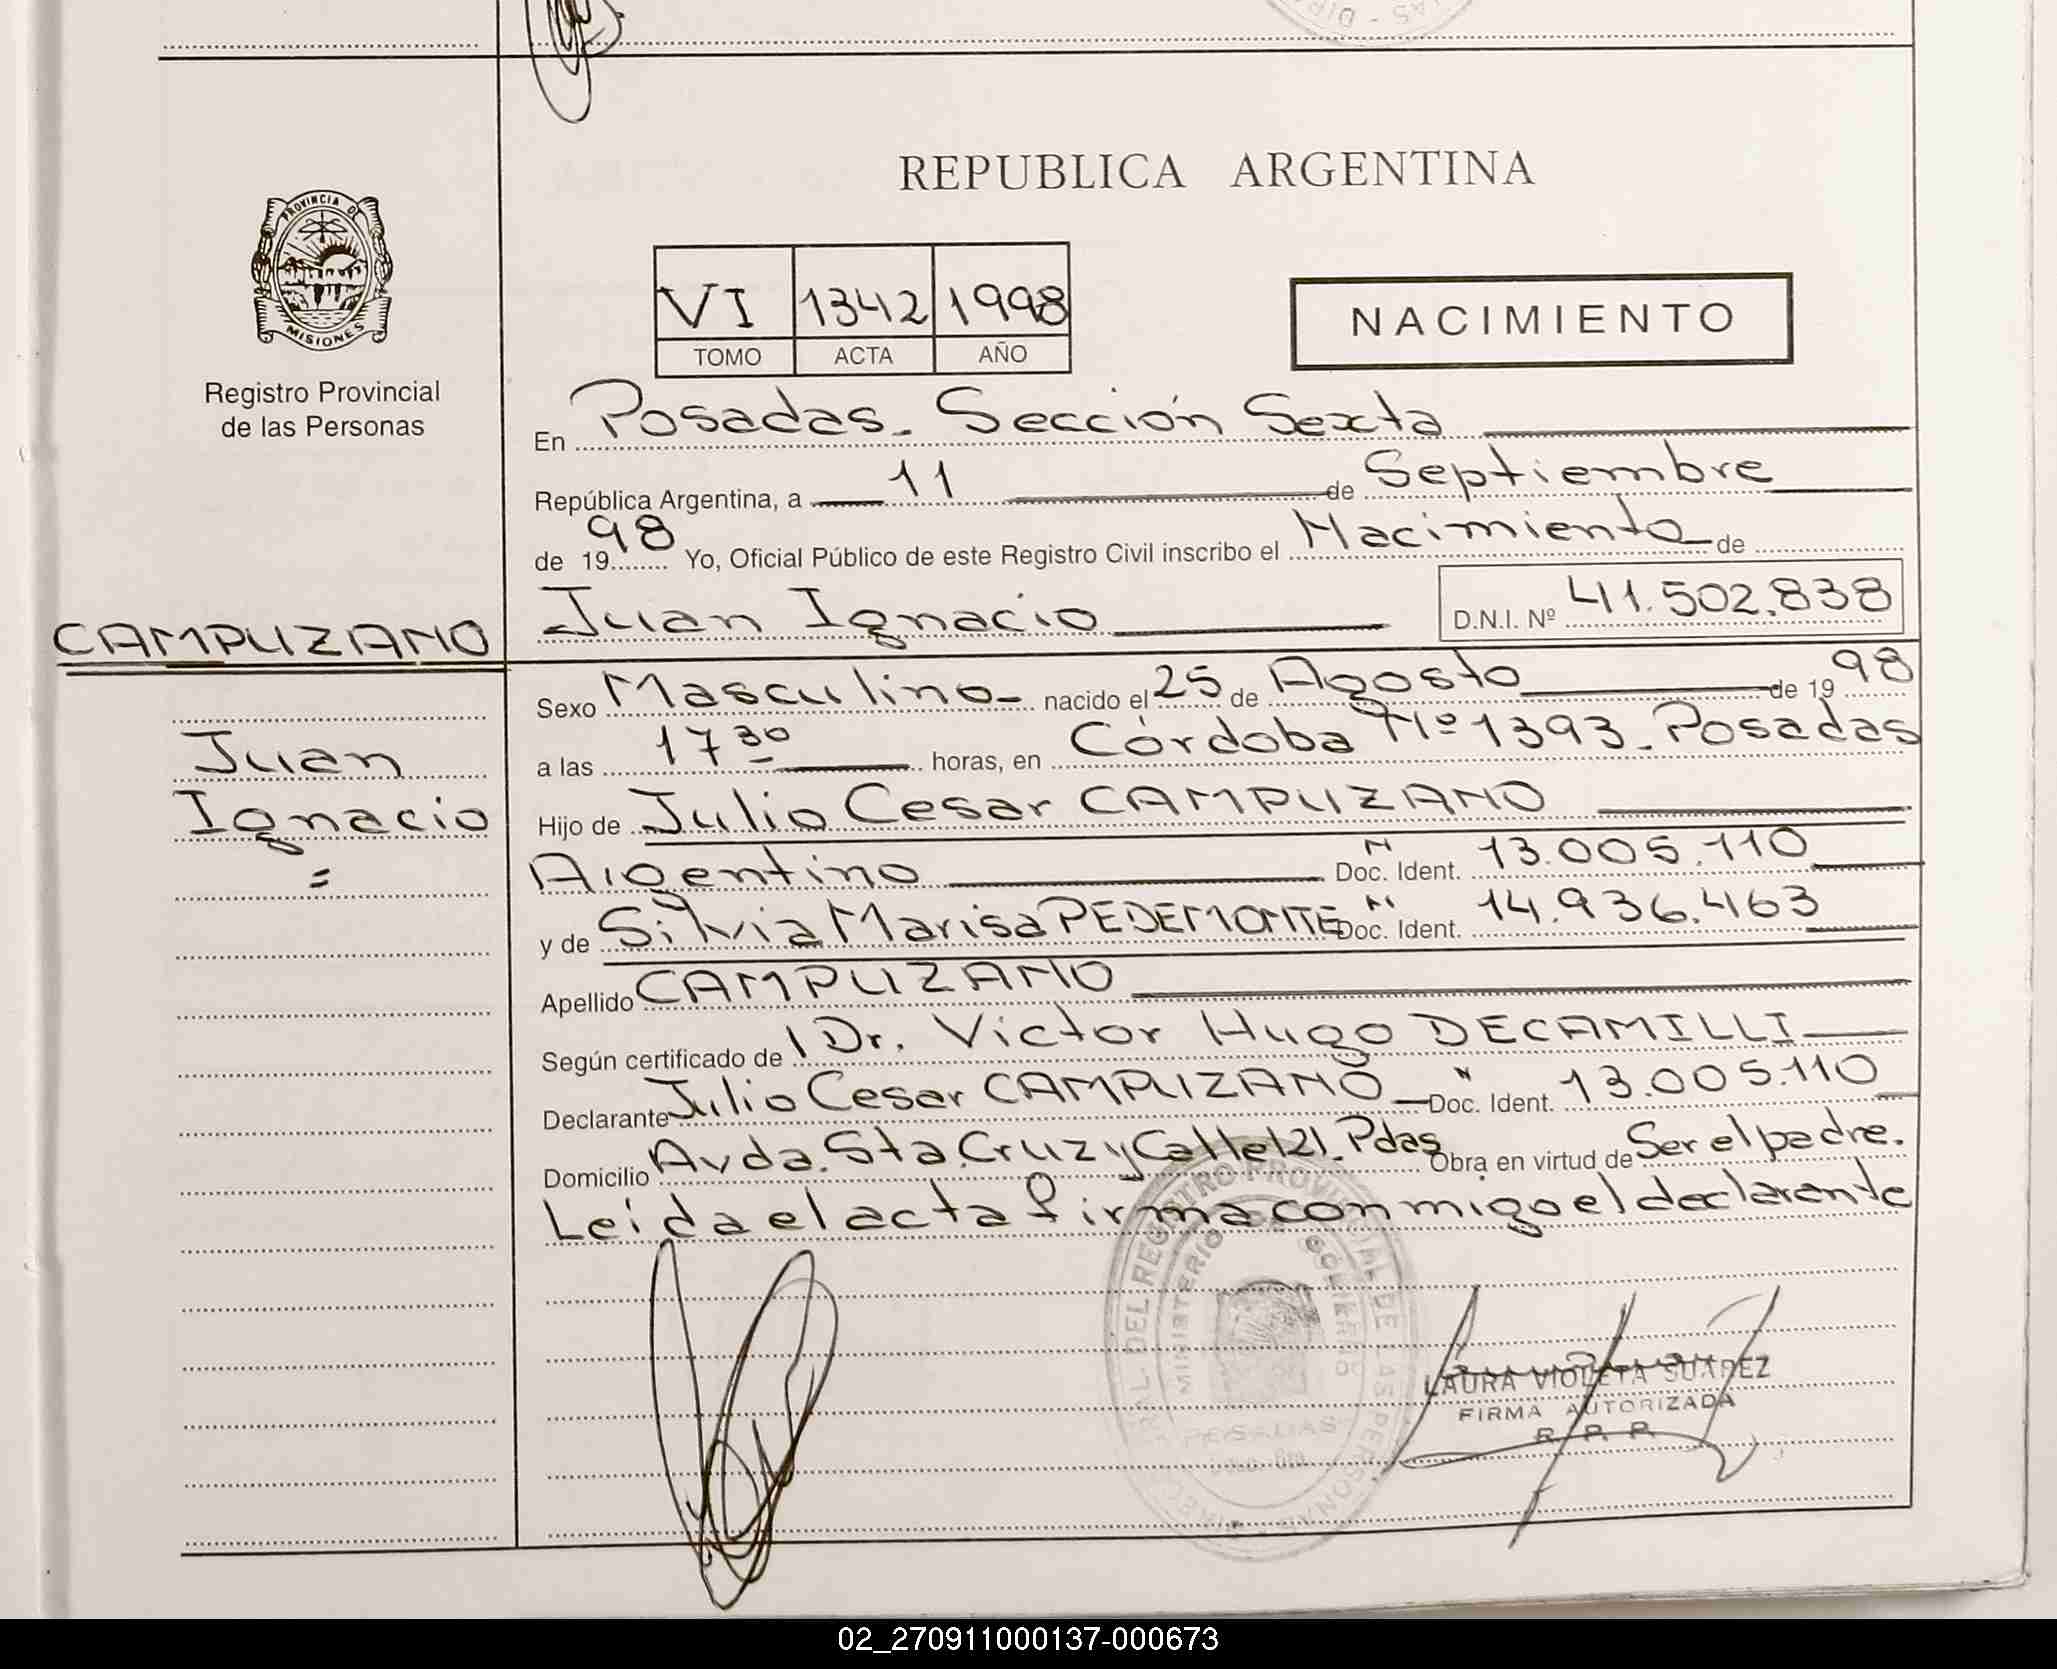 REPUBLICA ARGENTINA
PROVINCIA DE
MISIONES
Registro Provincial
de las Personas
VI 1342 1998
TOMO ACTA AÑO
NACIMIENTO
En Posadas. Sección Sexta
República Argentina, a 11 de Septiembre
de 1998 Yo, Oficial Público de este Registro Civil inscribo el Nacimiento de
Juan Ignacio D.N.I. Nº 41.502.838
CAMPUZANO
Juan
Ignacio
=
Sexo Masculino nacido el 25 de Agosto de 1998
a las 17 30 horas, en Córdoba Nº 1393. Posadas
Hijo de Julio Cesar CAMPUZANO
Argentino Doc. Ident. N 13.005.110
y de Silvia Marisa PEDEMONTE Doc. Ident. N 14.936.463
Apellido CAMPUZANO
Según certificado de Dr. Victor Hugo DECAMILLI
Declarante Julio Cesar CAMPUZANO Doc. Ident. N 13.005.110
Domicilio Avda. Sta. Cruz y Calle 121. Pdas Obra en virtud de Ser el padre.
Leída el acta firma conmigo el declarante
DEL REGISTRO PROVINCIAL DE LAS PERSONAS
MINISTERIO GOBIERNO
LAURA VIOLETA SUAREZ
FIRMA AUTORIZADA
R. P. P.
02_270911000137-000673